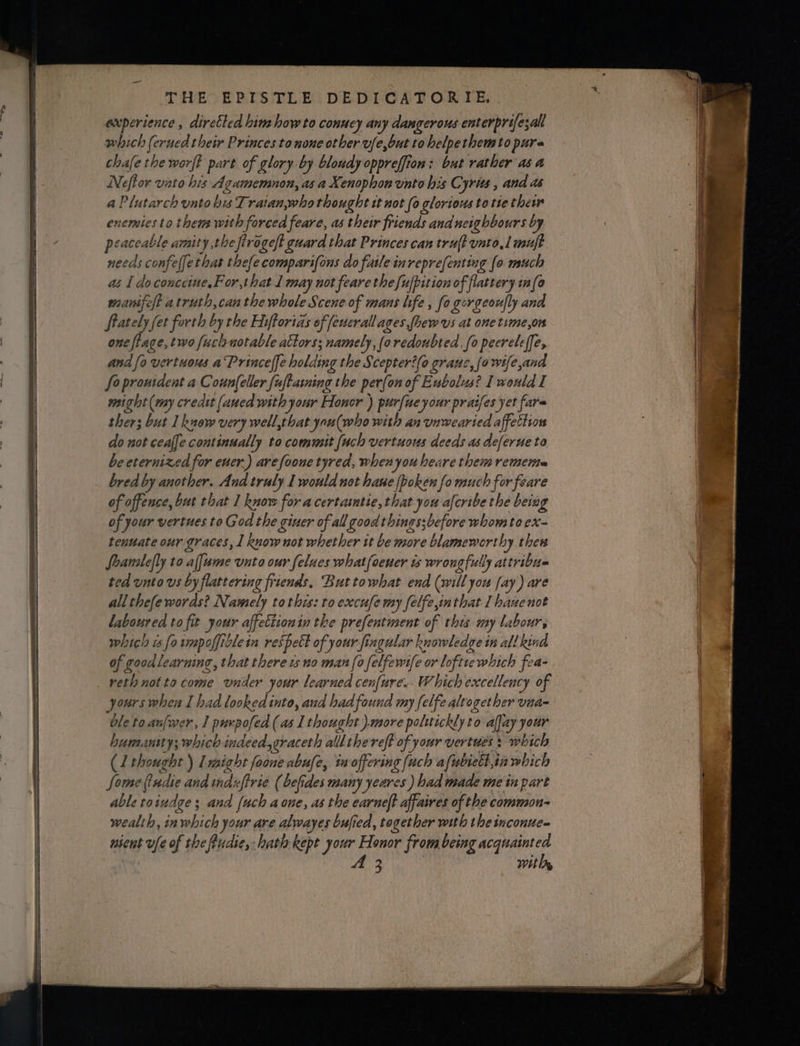 THE EPISTLE DEDICATORIE.
experience, directed him how to conuey any dangerous enterprise; all
which serued their Princes to none other vse, but to helpe them to pur-
chase the worst part of glory by bloudy oppression: but rather as a
Nestor vnto his Agamemnon, as a Xenophon vnto his Cyrus, and as
a Plutarch vnto his Traian, who thought it not so glorious to tie their
enemies to them with forced feare, as their friends and neighbours by
peaceable amity, the strõgest guard that Princes can trust vnto, I must
needs confesse that these comparisons do faile in representing so much
as I do conceiue. For, that I may not feare the suspition of flattery in so
manifest a truth, can the whole Scene of mans life, so gorgeously and
stately set forth by the Historias of seuerall ages shew vs at one time, on
one stage, two such notable actors; namely, so redoubted, so peerelesse,
and so vertuous a Princesse holding the Scepter? so graue, so wise, and
so prouident a Counseller sustaining the person of Eubolus? I would I
might (my credit saued with your Honor) pursue your praises yet far-
ther; but I know very well, that you (who with an vnwearied affection
do not ceasse continually to commit such vertuous deeds as deserue to
be eternized for euer) are soone tyred, when you heare them remem-
bred by another. And truly I would not haue spoken so much for feare
of offence, but that I know for a certaintie, that you ascribe the being
of your vertues to God the giuer of all good things; before whom to ex-
tenuate our graces, I know not whether it be more blameworthy then
shamlesly to assume vnto our selues whatsoeuer is wrongfully attribu-
ted vnto vs by flattering friends. But to what end (will you say) are
all these words? Namely to this: to excuse my selfe, in that I haue not
laboured to fit your affection in the presentment of this my labour,
which is so impossible in respect of your singular knowledge in all kind
of good learning, that there is no man so selfewise or loftie which fea-
reth not to come vnder your learned censure. Which excellency of
yours when I had looked into, and had found my selfe altogether vna-
ble to answer, I purposed (as I thought) more politickly to assay your
humanity; which indeed, graceth all the rest of your vertues: which
(I thought) I might soone abuse, in offering such a subiect, in which
some studie and industrie (besides many yeares) had made me in part
able to iudge; and such a one, as the earnest affaires of the common-
wealth, in which your are alwayes busied, together with the inconue-
nient vse of the studie, hath kept your Honor from being acquainted
A 3 with,